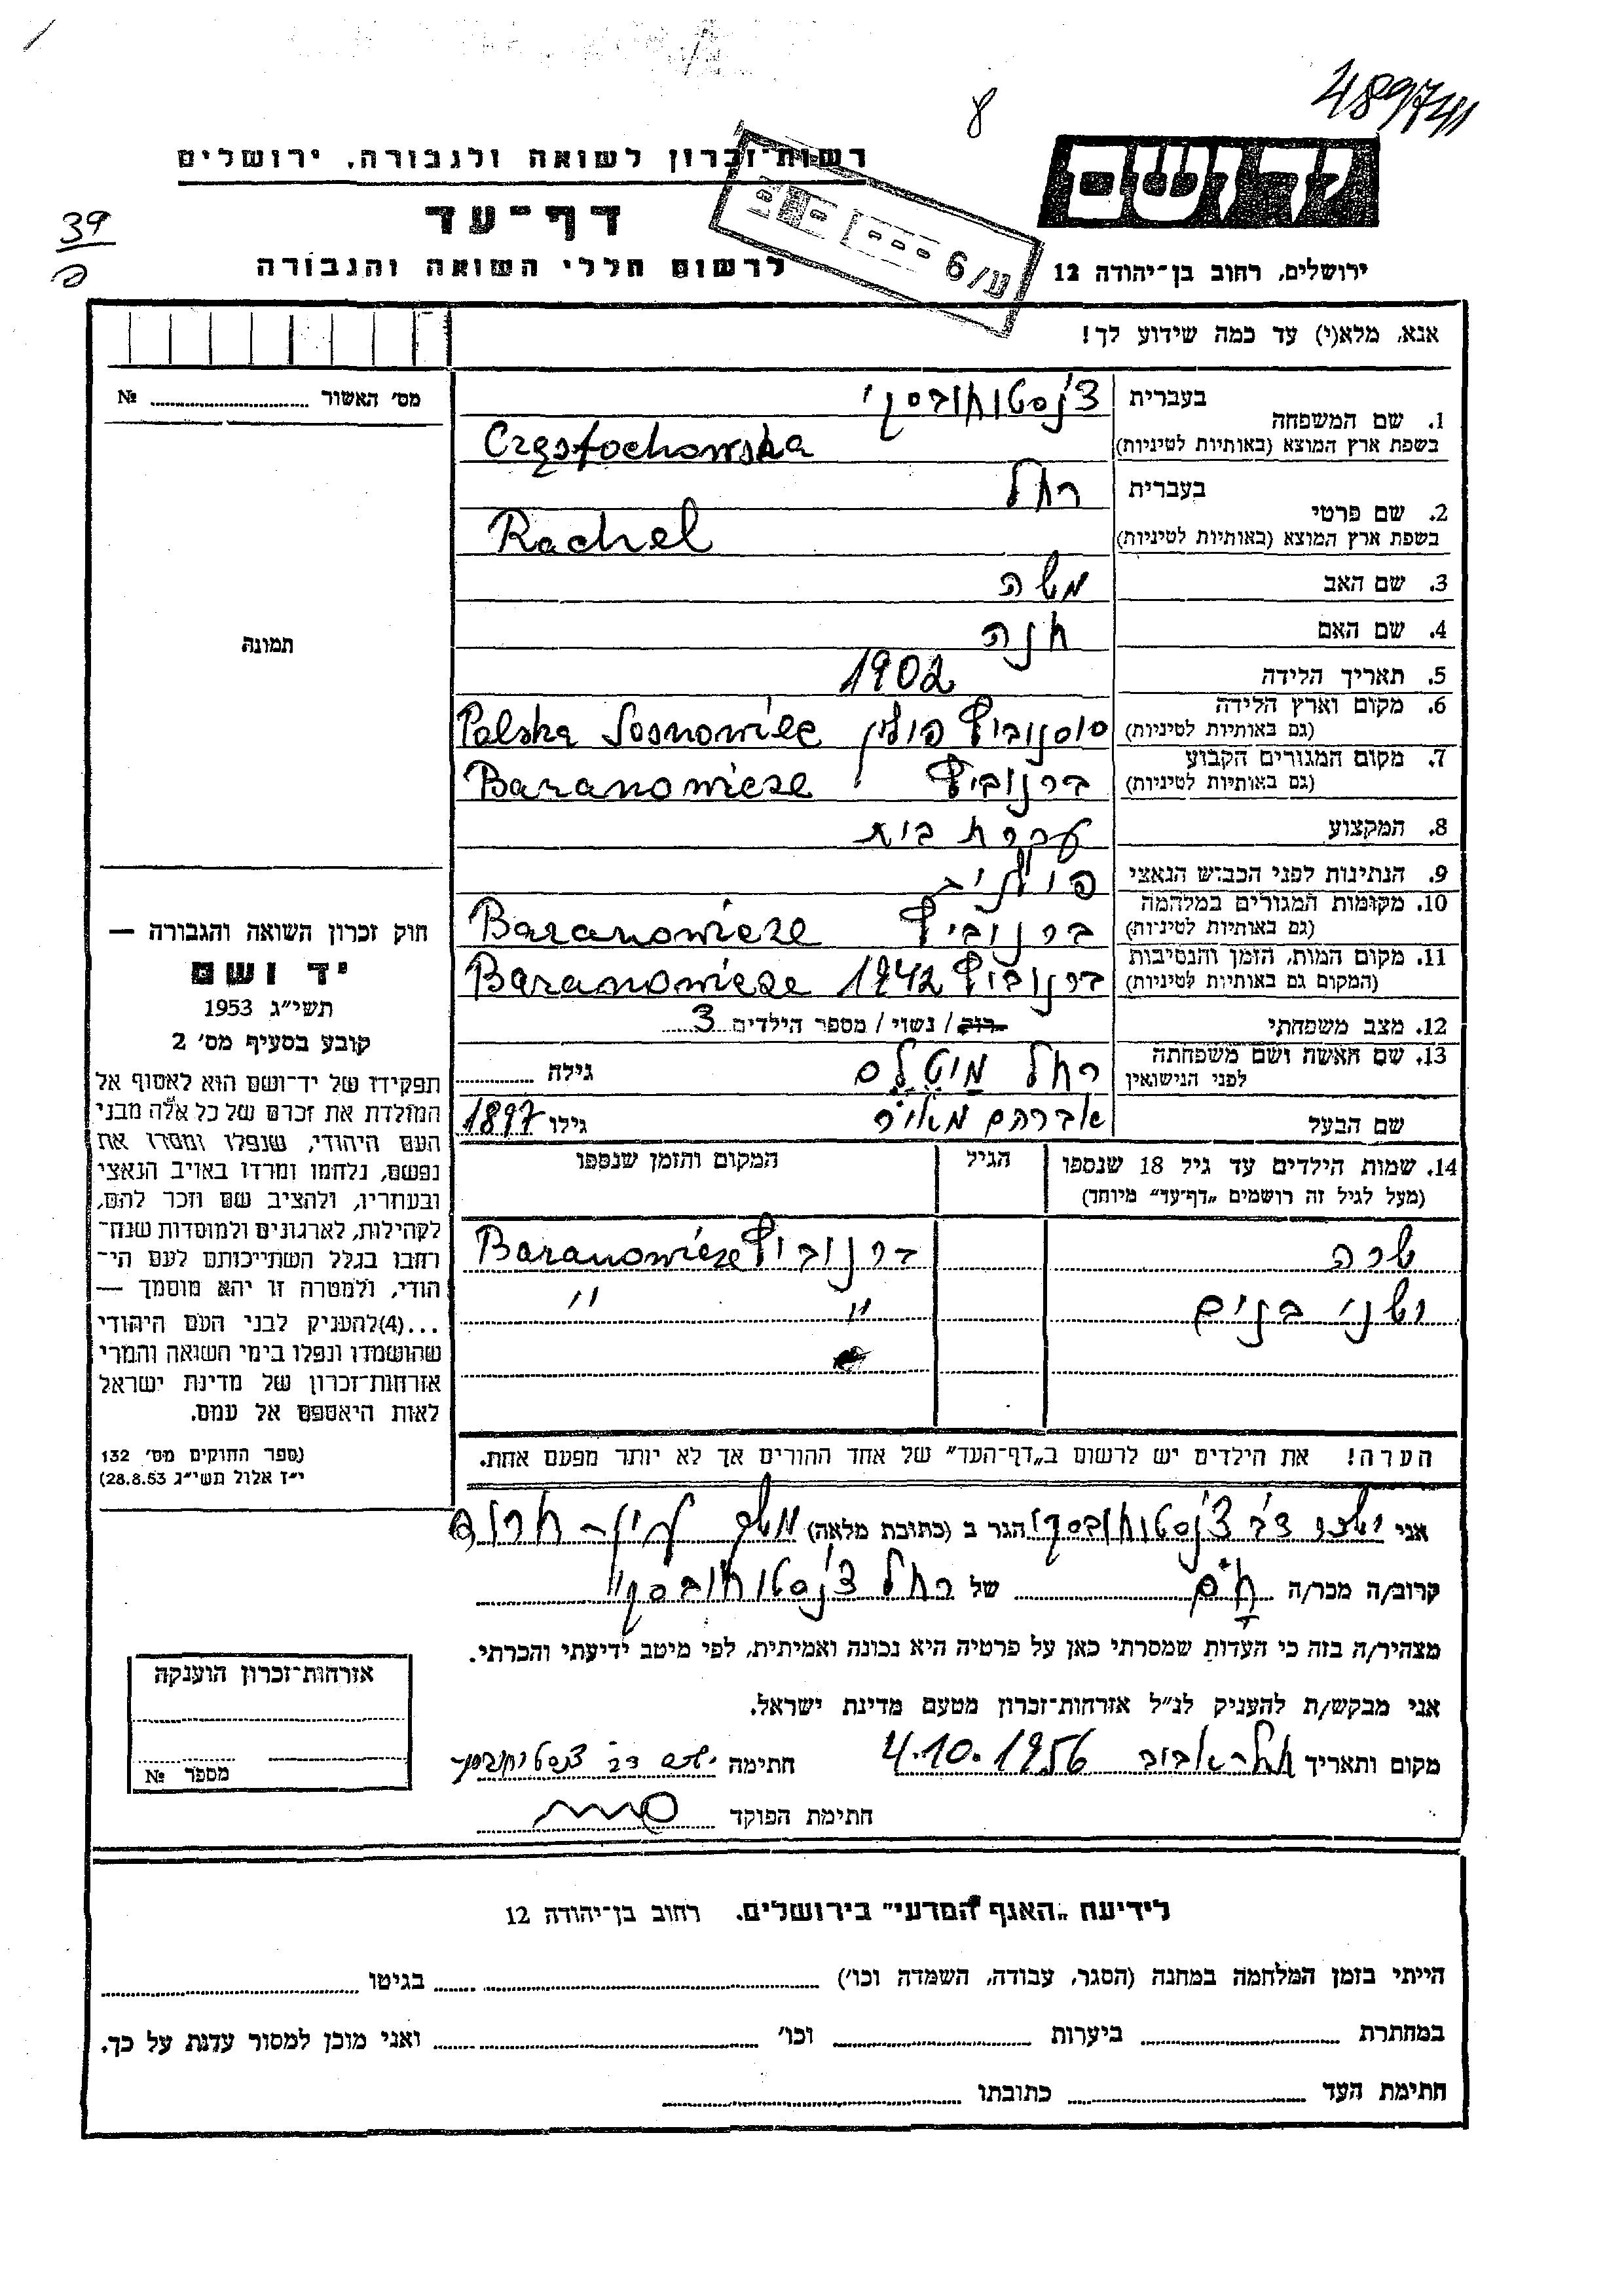 489741
8
יד ושם
רשות־זכרון לשואה ולגבורה, ירושלים
דף־עד
39
לרשום חללי השואה והגבורה
ע/6
ירושלים, רחוב בן־יהודה 12
אנא, מלא(י) עד כמה שידוע לך!
מס׳ האשור № ........
1. שם המשפחה בעברית צ'נסטוחובסקי
בשפת ארץ המוצא (באותיות לטיניות) Częstochowska
2. שם פרטי בעברית רחל
בשפת ארץ המוצא (באותיות לטיניות) Rachel
3. שם האב משה
4. שם האם חנה
5. תאריך הלידה 1902
6. מקום וארץ הלידה (גם באותיות לטיניות) סוסנוביץ פולין Polska Sosnowiec
7. מקום המגורים הקבוע (גם באותיות לטיניות) ברנוביץ Baranowicze
8. המקצוע עקרת בית
9. הנתינות לפני הכבוש הנאצי
10. מקומות המגורים במלחמה (גם באותיות לטיניות) ברנוביץ Baranowicze
11. מקום המות, הזמן והנסיבות (המקום גם באותיות לטיניות) ברנוביץ 1942 Baranowicze
12. מצב משפחתי רוק / נשוי / מספר הילדים 3
13. שם האשה ושם משפחתה לפני הנישואין רחל גילה
שם הבעל אברהם מאיר גילו 1897
14. שמות הילדים עד גיל 18 שנספו
(מעל לגיל זה רושמים „דף־עד״ מיוחד)
הגיל
המקום והזמן שנספו
שרה ברנוביץ Baranowicze
ושני בנים " "
הערה! את הילדים יש לרשום ב„דף־העד״ של אחד ההורים אך לא יותר מפעם אחת.
תמונה
חוק זכרון השואה והגבורה —
יד ושם
תשי״ג 1953
קובע בסעיף מס׳ 2
תפקידו של יד־ושם הוא לאסוף אל
המולדת את זכרם של כל אלה מבני
העם היהודי, שנפלו ומסרו את
נפשם, נלחמו ומרדו באויב הנאצי
ובעוזריו, ולהציב שם וזכר להם,
לקהילות, לארגונים ולמוסדות שנח־
רחבו בגלל השתייכותם לעם הי־
הודי, ולמטרה זו יהא מוסמך —
...(4)להעניק לבני העם היהודי
שהושמדו ונפלו בימי השואה והמרי
אזרחות־זכרון של מדינת ישראל
לאות היאספם אל עמם.
(ספר החוקים מס׳ 132
י״ז אלול תשי״ג 28.8.53)
אני דב צ'נסטוחובסקי הגר ב (כתובת מלאה) משק עין־חרוד
קרוב/ה מכר/ה של רחל צ'נסטוחובסקי
מצהיר/ה בזה כי העדות שמסרתי כאן על פרטיה היא נכונה ואמיתית, לפי מיטב ידיעתי והכרתי.
אני מבקש/ת להעניק לנ״ל אזרחות־זכרון מטעם מדינת ישראל.
מקום ותאריך תל־אביב 4.10.1956 חתימה דב צ'נסטוחובסקי
חתימת הפוקד
אזרחות־זכרון הוענקה
מספר №
לידיעת „האגף המדעי״ בירושלים. רחוב בן־יהודה 12
הייתי בזמן המלחמה במחנה (הסגר, עבודה, השמדה וכו׳) בגיטו
במחתרת ביערות וכו׳ ואני מוכן למסור עדות על כך.
חתימת העד כתובתו